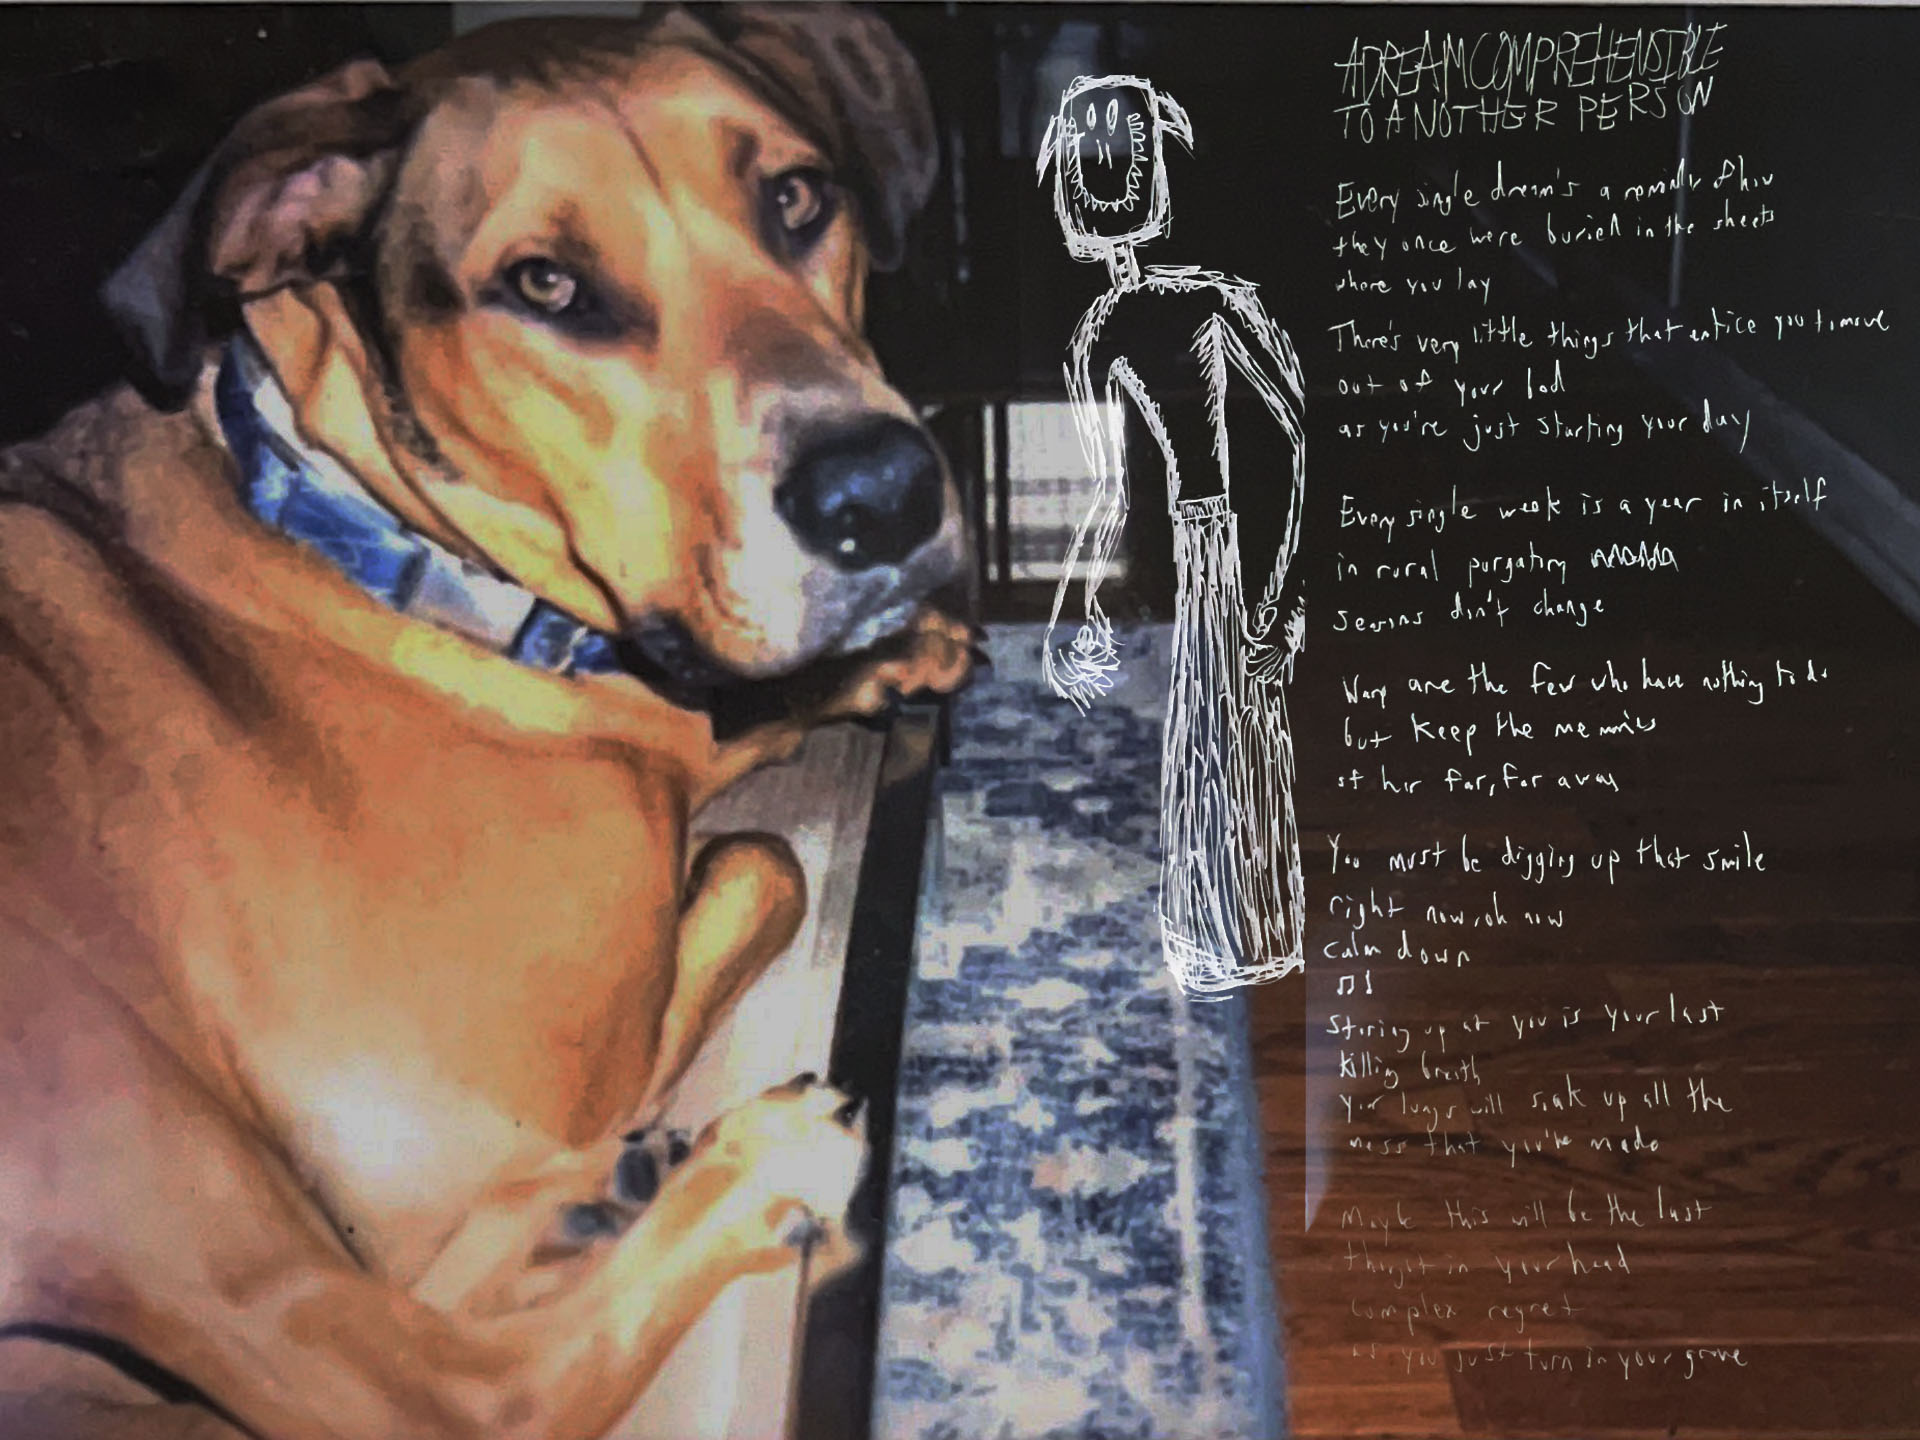 A DREAM COMPREHENSIBLE
TO ANOTHER PERSON
Every single dream's a reminder of how
they once were buried in the sheets
where you lay
There's very little things that entice you to move
out of your bed
as you're just starting your day
Every single week is a year in itself
in rural purgatory
seasons don't change
are the few who have nothing to do
but keep the memories
of her far, far away
You must be digging up that smile
right now, oh now
calm down
Staring up at you is your last
killing breath
your lungs will soak up all the
mess that you've made
Maybe this will be the last
thought in your head
complex regret
as you just turn in your grave